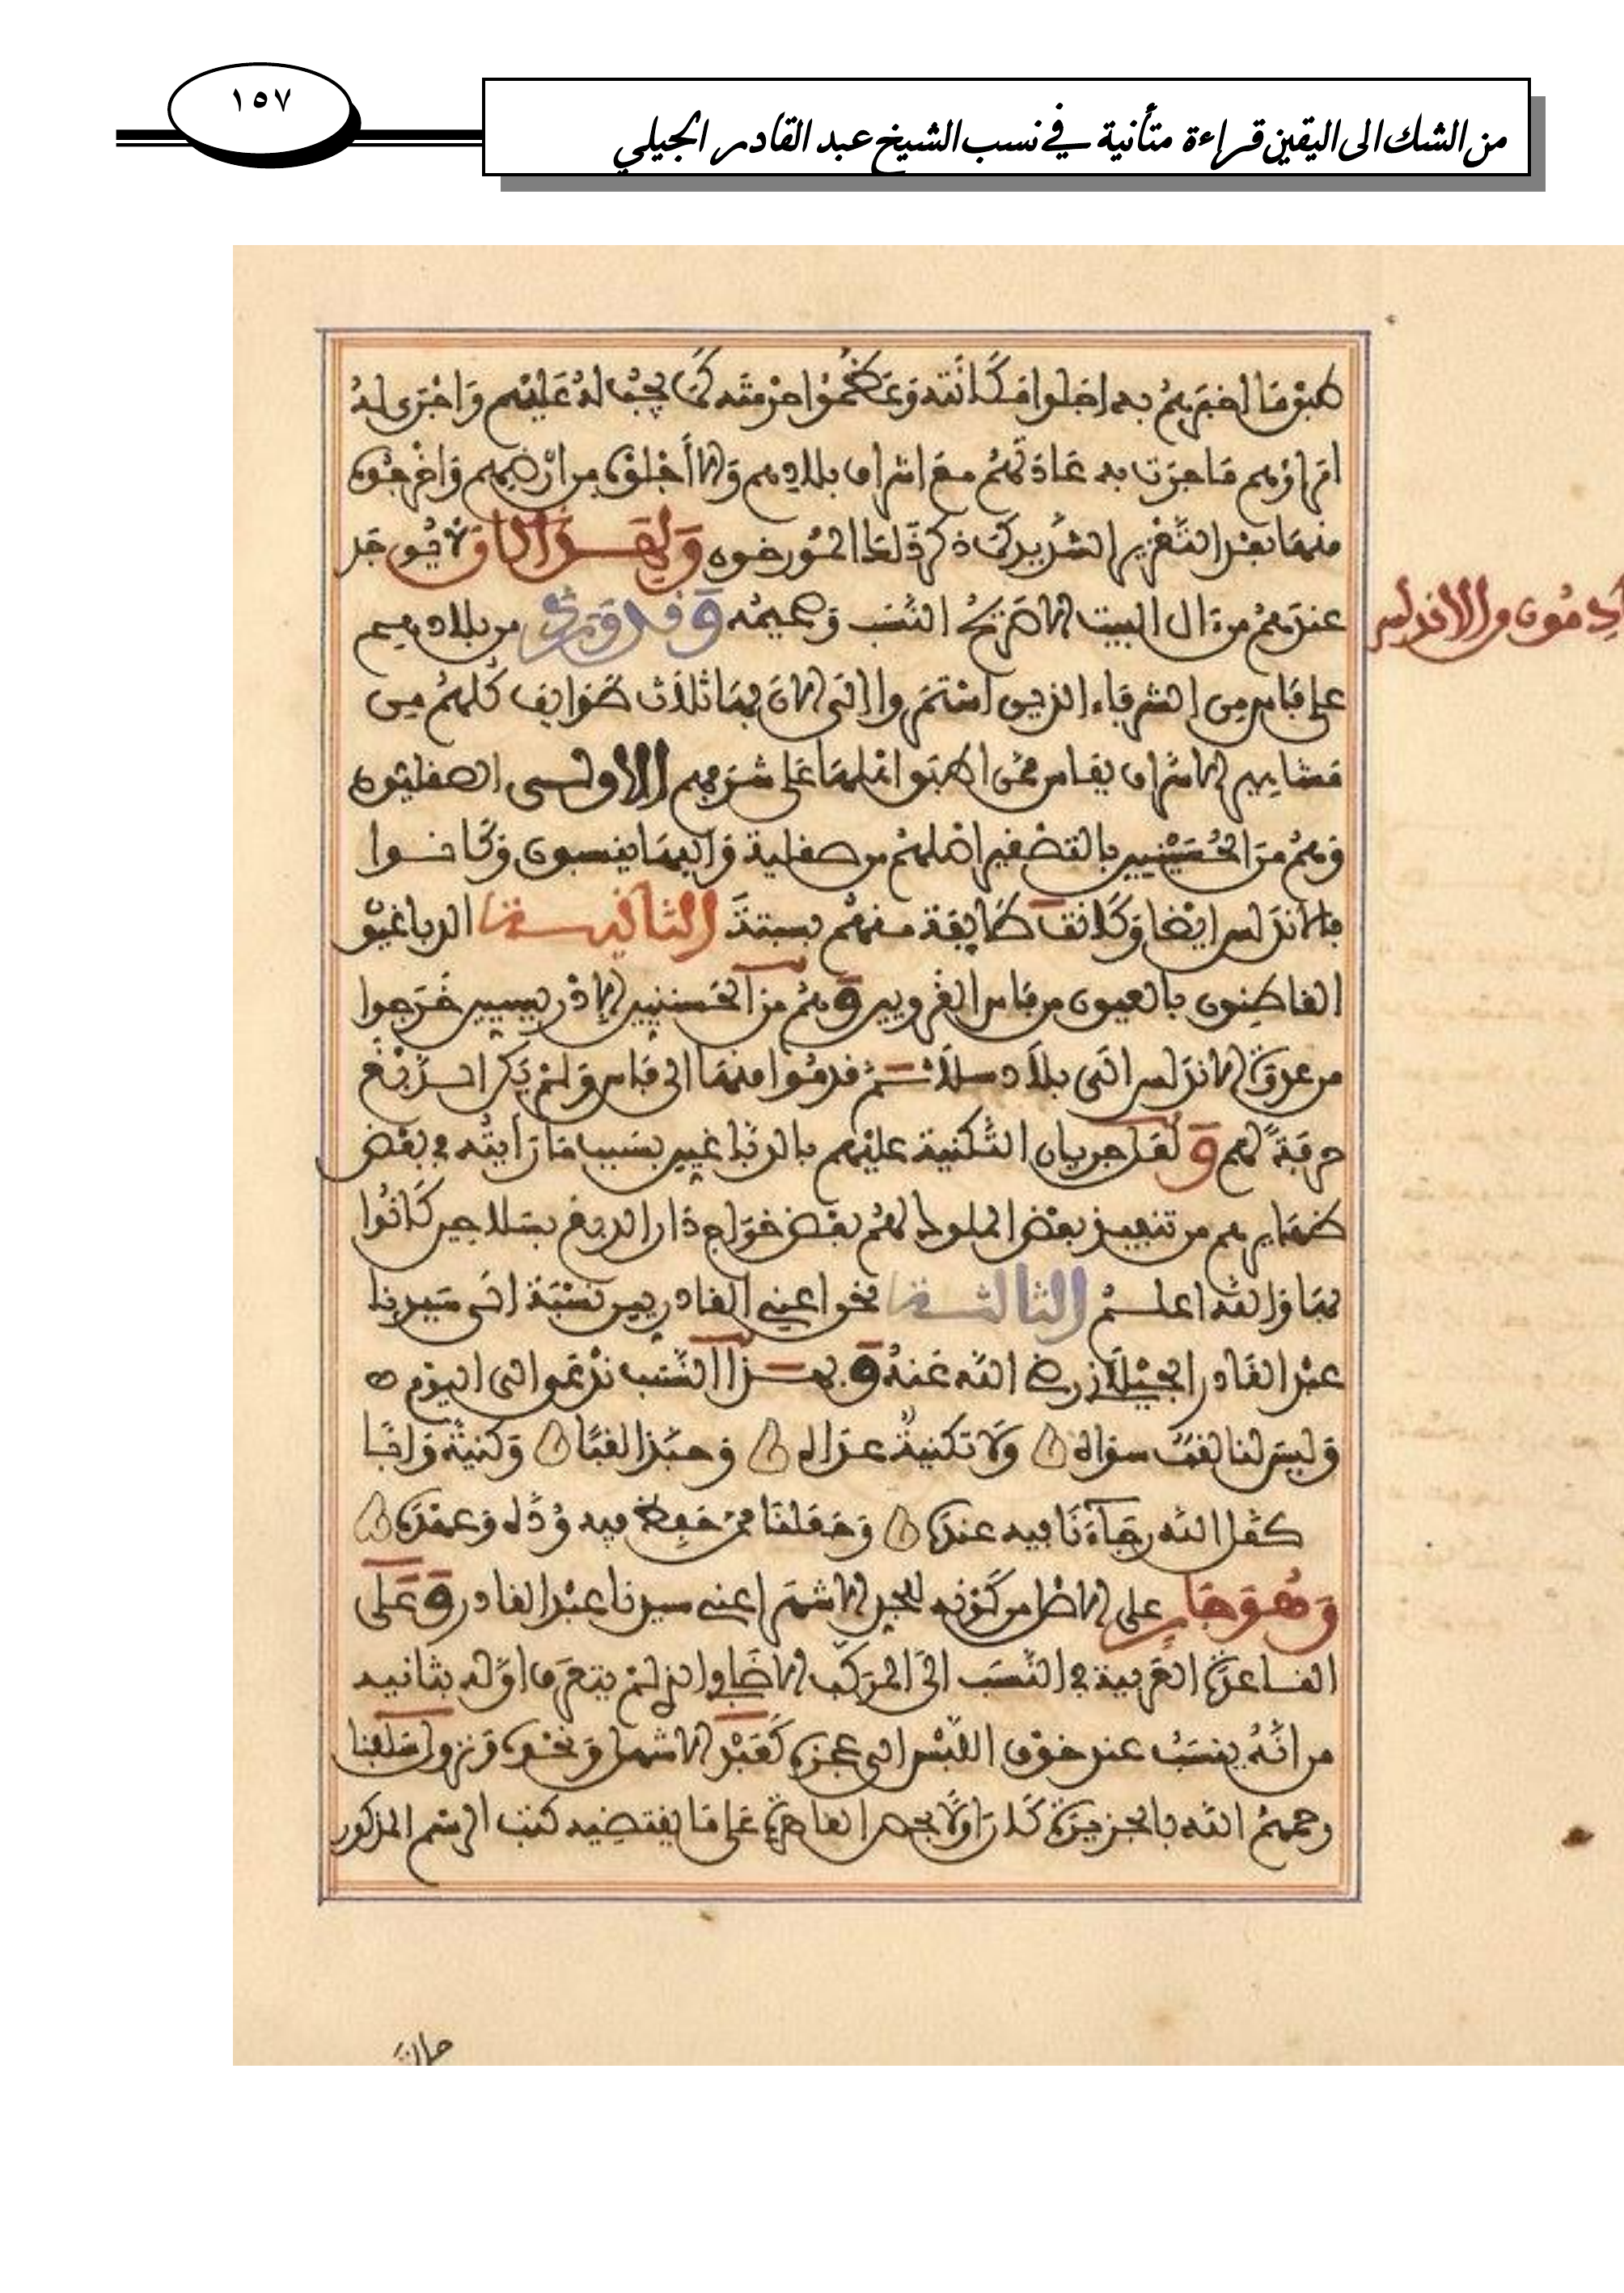 ١٥٧
من الشك الى اليقين قراءة متأنية في نسب الشيخ عبد القادر الجيلي
ما اخبرهم به اجلوا مكانته وعظموا حرمته كما يجب له عليهم واجرى له
امراؤهم ما جرت به عادتهم مع اشراف بلادهم والا اجلوه من ارضهم واخرجوه
منها بعد التعزير الشديد كما ذكر ذلك المورخون ولهذا لا يوجد
عندهم من ءال البيت الا صريح النسب وصميمه وقد ورد من بلادهم
القادمون من الاندلس
على فاس من الشرفاء الذين استمروا الى الان بها ثلاث طوايف كلهم من
مشاهير الاشراف بفاس ممن اطبق اهلها على شرفهم الاولى الصقليون
وهم من الحسينيين بالتصغير اصلهم من صقلية واليها ينسبون وكانوا
بالاندلس ايضا وكانت طايفة منهم بسبتة الثانية الدباغيون
القاطنون بالعيون من فاس القرويين وهم من الحسنيين الادريسيين خرجوا
من عدوة الاندلس الى بلاد سلا ثم قدموا منها الى فاس ولم يكن الدبغ
حرفة لهم و جريان التكنية عليهم بالدباغيين بسبب ما رايته في بعض
ظهايرهم من تنفيذ بعض الملوك لهم بعض خراج دار الدبغ بسلا حين كانوا
بها والله اعلم الثالثة نحن اعني القادريين نسبة الى سيدنا
عبد القادر الجيلاني رضي الله عنه وبهذا النسب ندعوا الى اليوم
وليس لنا لقب سواه ولا تكنية عداه وحبذا لقبا وكنية
الله رجاءنا فيه عنده وجعلنا ممن حفظ فيه وده وعهده
وهو جار على الاصل من كونه للجد الاشهر اعني سيدنا عبد القادر وعلى
القاعدة العربية في النسب الى المركب الاضافي الذي لم يتعرف اوله بثانيه
من انه ينسب عند خوف اللبس الى عجزه كعبد الاشهل ونحوه ونزول سلفنا
رحمهم الله بالجزيرة كان اولا بحصر على ما يقتضيه كتب الرسم المذكور